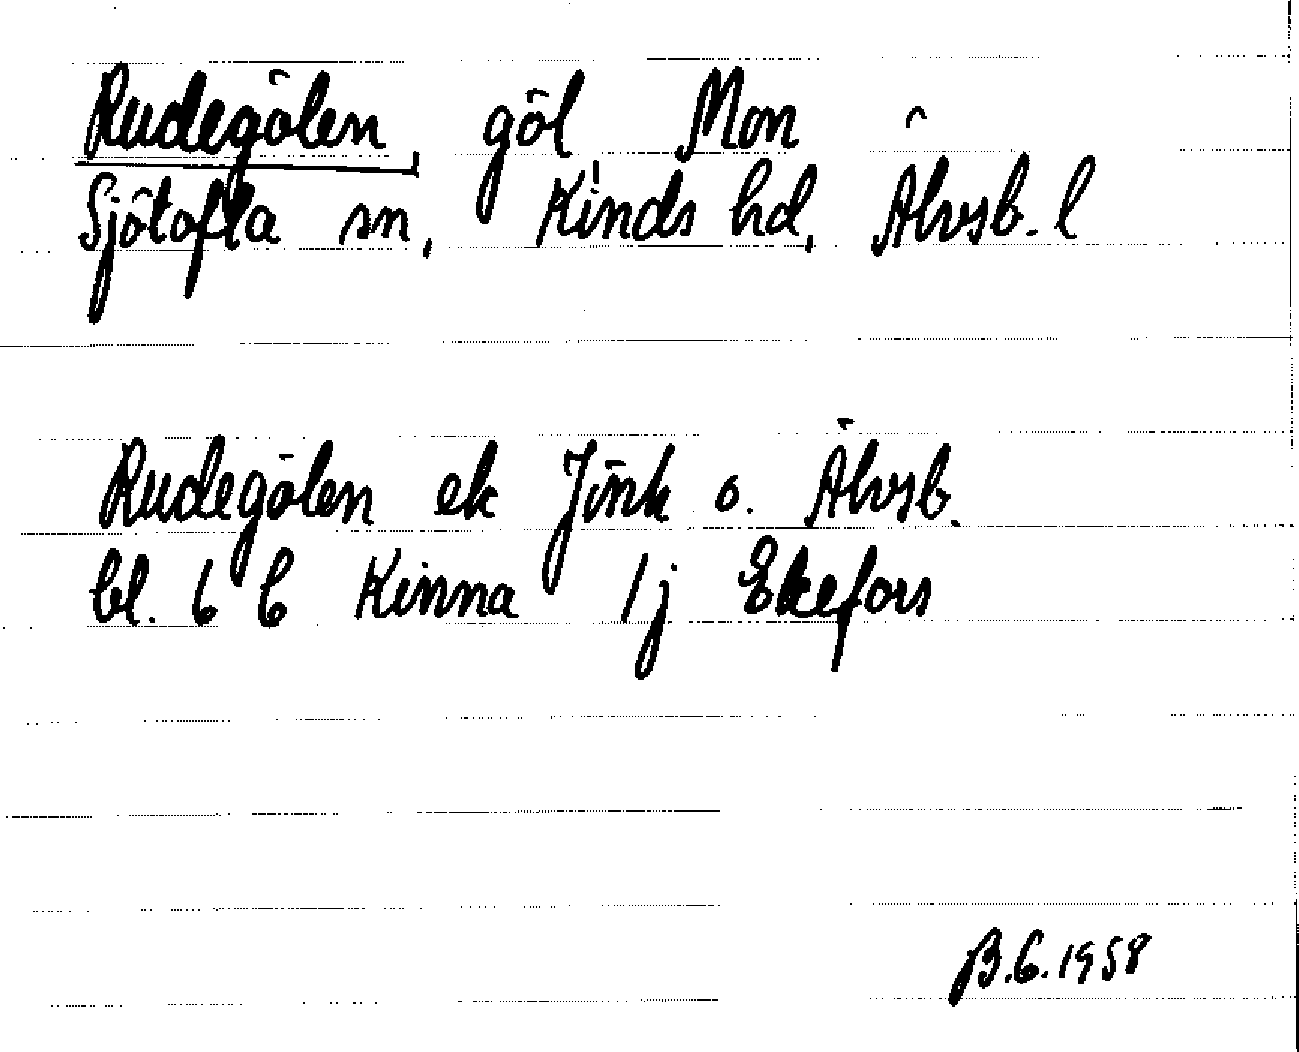 Rudegölen, göl, Mon
Sjötofta sn, Kinds hd, Älvsb. l
Rudegölen ek Jönk o. Älvsb.
bl. 6 C Kinna 1j Ekefors
B.G. 1958